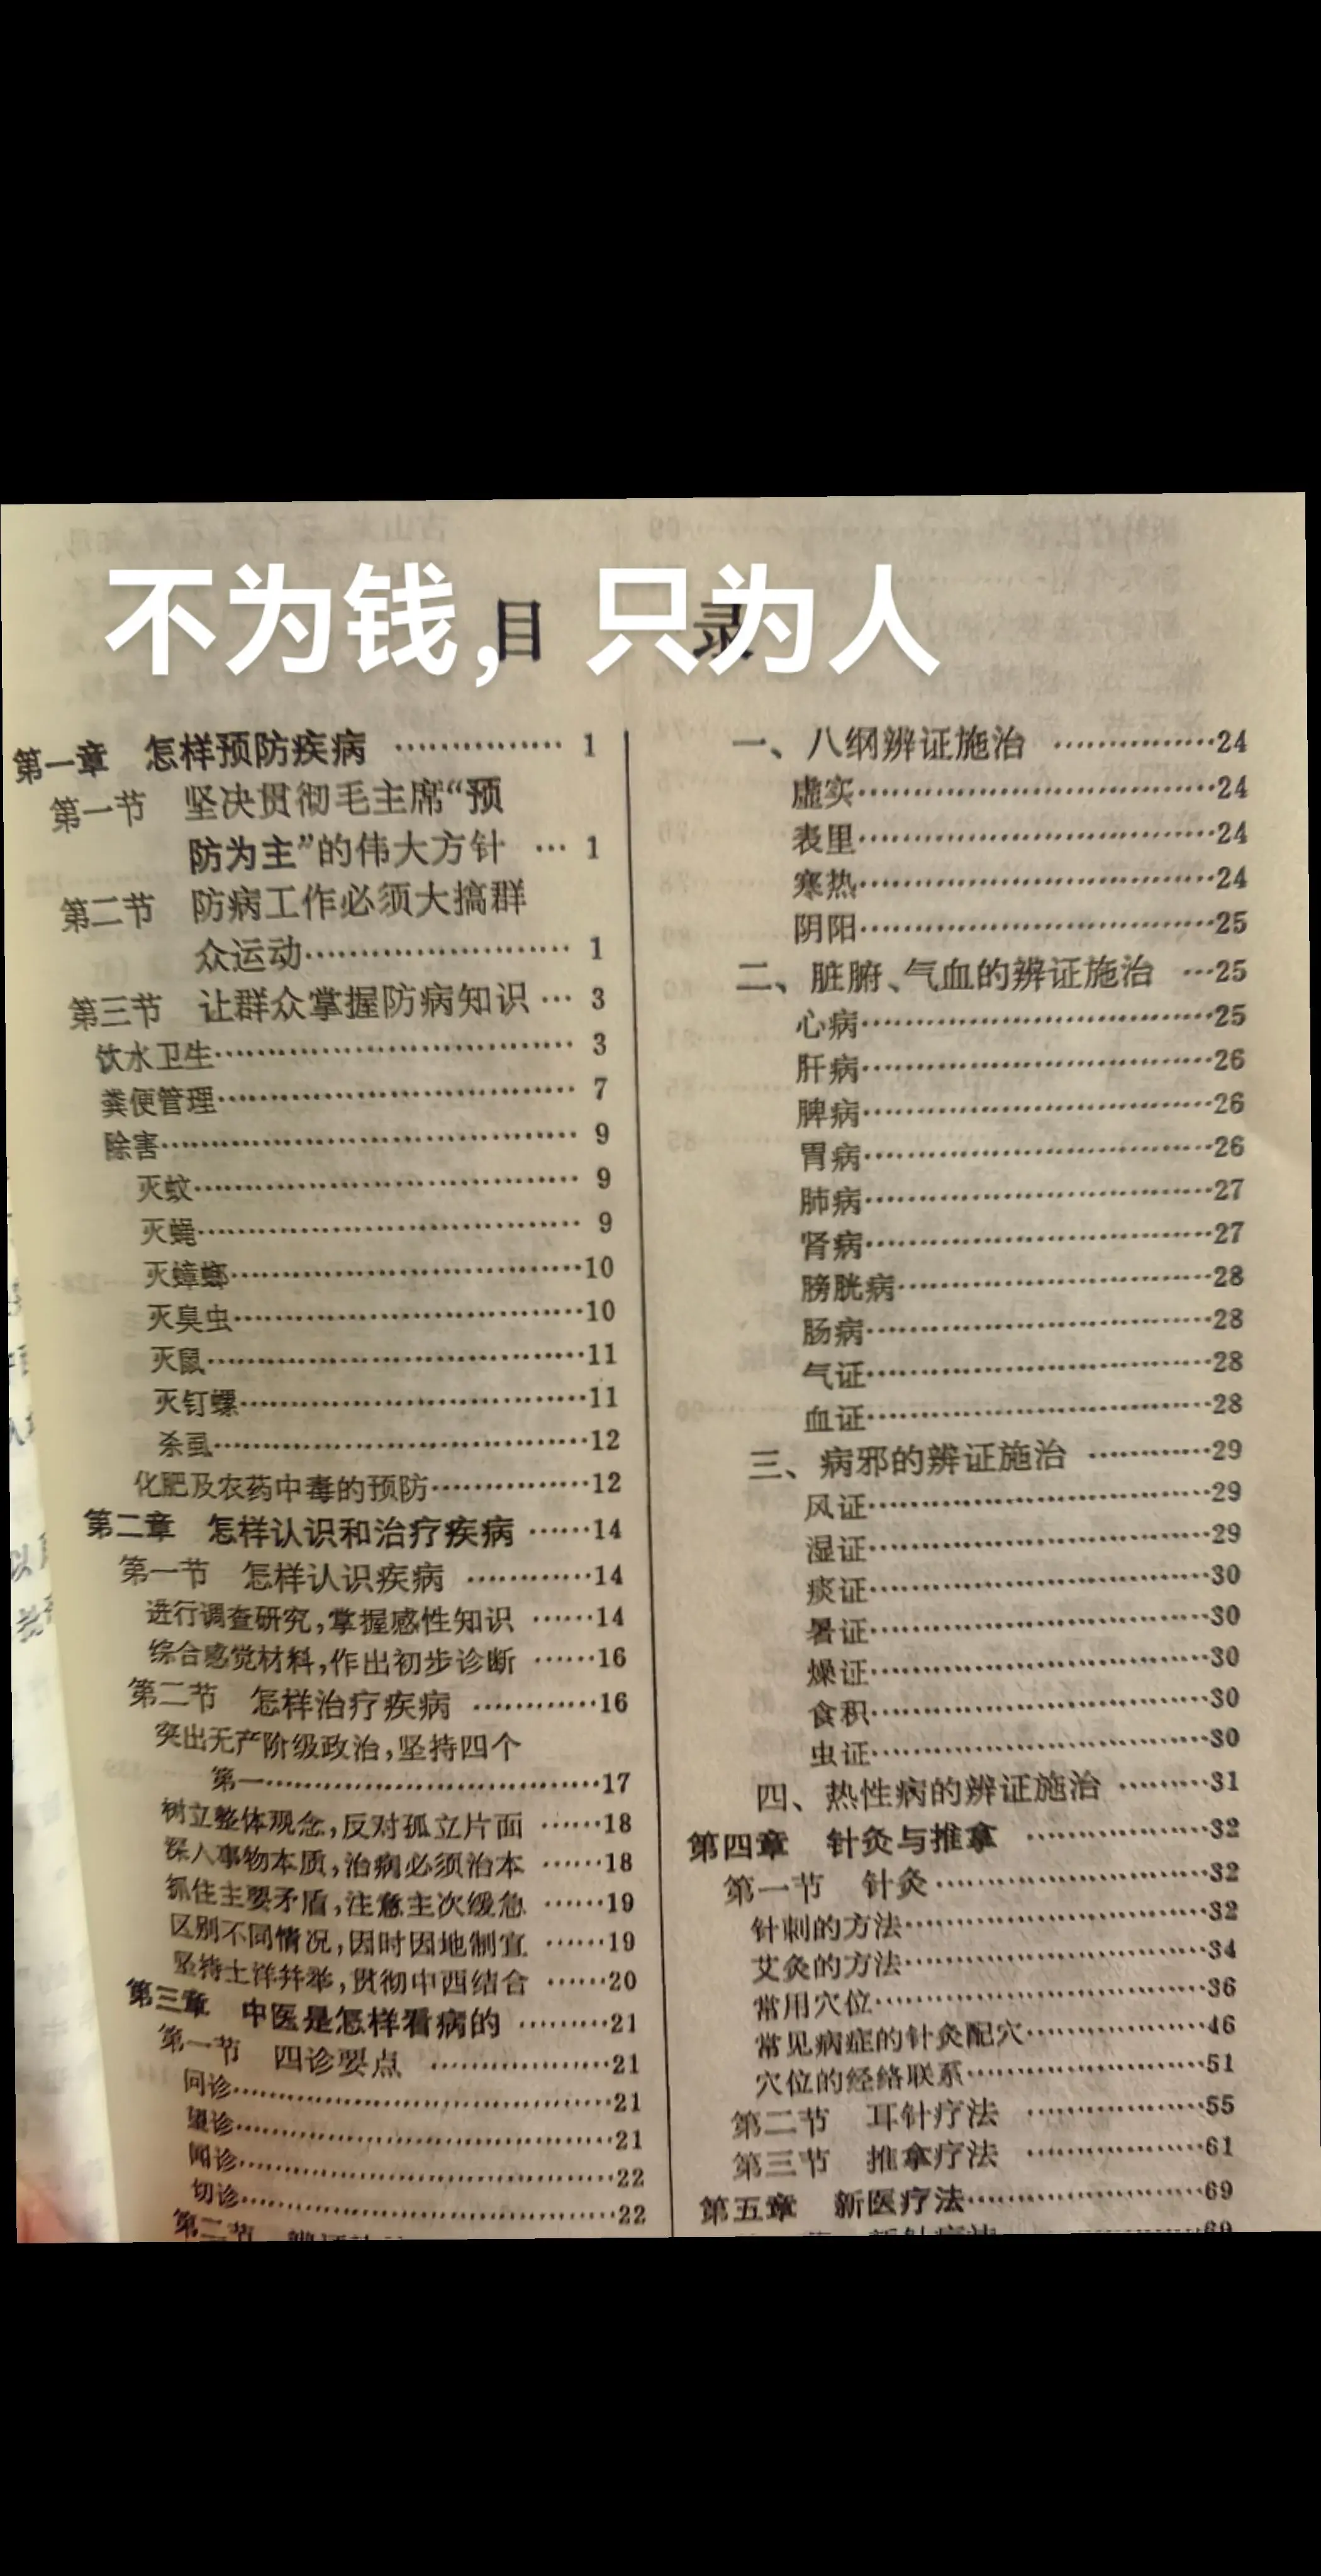 不为钱，只为人
目 录
第一章 怎样预防疾病 …………… 1
第一节 坚决贯彻毛主席“预
防为主”的伟大方针 … 1
第二节 防病工作必须大搞群
众运动…………………… 1
第三节 让群众掌握防病知识… 3
饮水卫生…………………………… 3
粪便管理…………………………… 7
除害………………………………… 9
灭蚊……………………………… 9
灭蝇……………………………… 9
灭蟑螂……………………………10
灭臭虫……………………………10
灭鼠………………………………11
灭钉螺……………………………11
杀虱………………………………12
化肥及农药中毒的预防……………12
第二章 怎样认识和治疗疾病 ……14
第一节 怎样认识疾病 …………14
进行调查研究，掌握感性知识 ……14
综合感觉材料，作出初步诊断 ……16
第二节 怎样治疗疾病 …………16
突出无产阶级政治，坚持四个
第一………………………………17
树立整体观念，反对孤立片面 ……18
深入事物本质，治病必须治本 ……18
抓住主要矛盾，注意主次缓急 ……19
区别不同情况，因时因地制宜 ……19
坚持土洋并举，贯彻中西结合 ……20
第三章 中医是怎样看病的 ………21
第一节 四诊要点 ………………21
问诊…………………………………21
望诊…………………………………21
闻诊…………………………………22
切诊…………………………………22
第二节
一、八纲辨证施治 ……………24
虚实………………………………24
表里………………………………24
寒热………………………………24
阴阳………………………………25
二、脏腑、气血的辨证施治 …25
心病………………………………25
肝病………………………………26
脾病………………………………26
胃病………………………………26
肺病………………………………27
肾病………………………………27
膀胱病……………………………28
肠病………………………………28
气证………………………………28
血证………………………………28
三、病邪的辨证施治 …………29
风证………………………………29
湿证………………………………29
痰证………………………………30
暑证………………………………30
燥证………………………………30
食积………………………………30
虫证………………………………30
四、热性病的辨证施治 ………31
第四章 针灸与推拿 ………………32
第一节 针灸………………………32
针刺的方法…………………………32
艾灸的方法…………………………34
常用穴位……………………………36
常见病症的针灸配穴………………46
穴位的经络联系……………………51
第二节 耳针疗法 ………………55
第三节 推拿疗法 ………………61
第五章 新医疗法……………………69